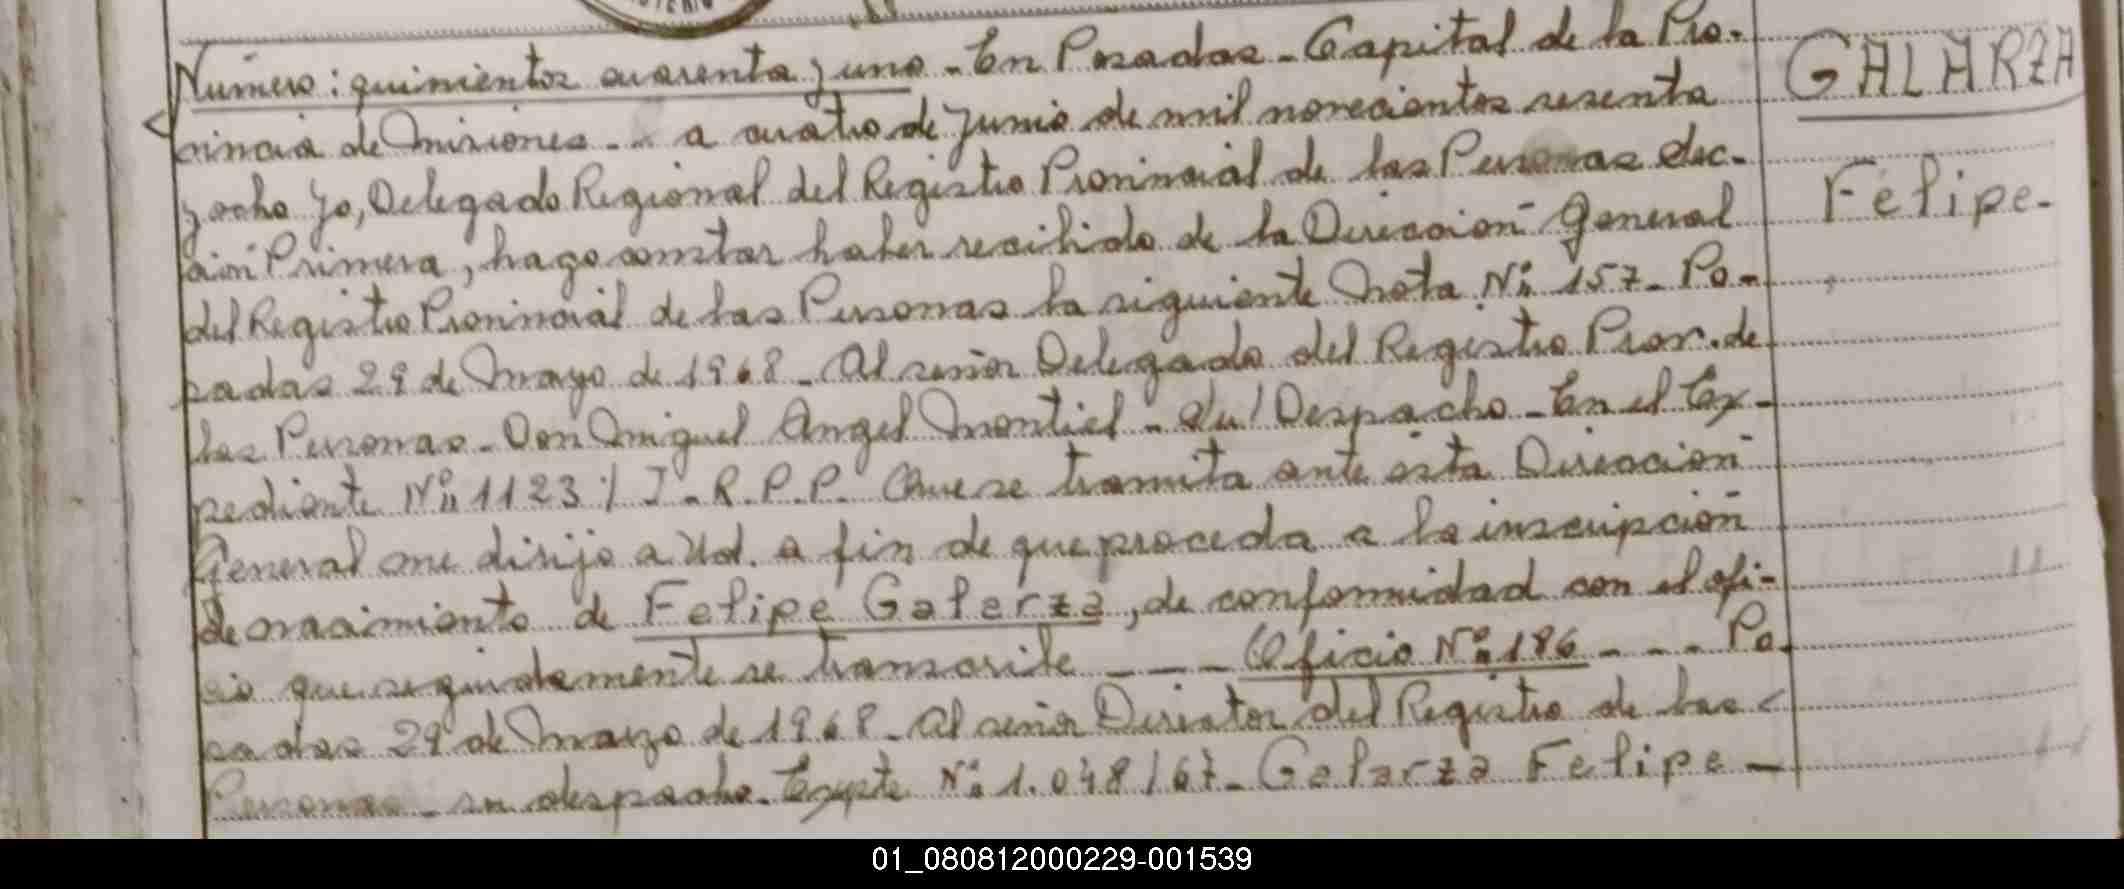 Número: quinientos cuarenta y uno - En Posadas - Capital de la Pro-
vincia de Misiones - a cuatro de Junio de mil novecientos sesenta
y ocho yo, Delegado Regional del Registro Provincial de las Personas Sec-
ción Primera, hago constar haber recibido de la Dirección General
del Registro Provincial de las Personas la siguiente Nota Nº 157 - Po-
sadas 29 de Mayo de 1968 - Al señor Delegado del Registro Prov. de
las Personas - Don Miguel Angel Montiel - Su/ Despacho - En el Ex-
pediente Nº 1123 / J - R.P.P. Que se tramita ante esta Dirección
General me dirijo a Ud. a fin de que proceda a la inscripción
de nacimiento de Felipe Galarza, de conformidad con el ofi-
cio que seguidamente se transcribe - - - Oficio Nº 186 - - - Po-
sadas 29 de Marzo de 1968 - Al señor Director del Registro de las
Personas - su despacho - Expte Nº 1.048/67 - Galarza Felipe -
GALARZA
Felipe -
01_080812000229-001539